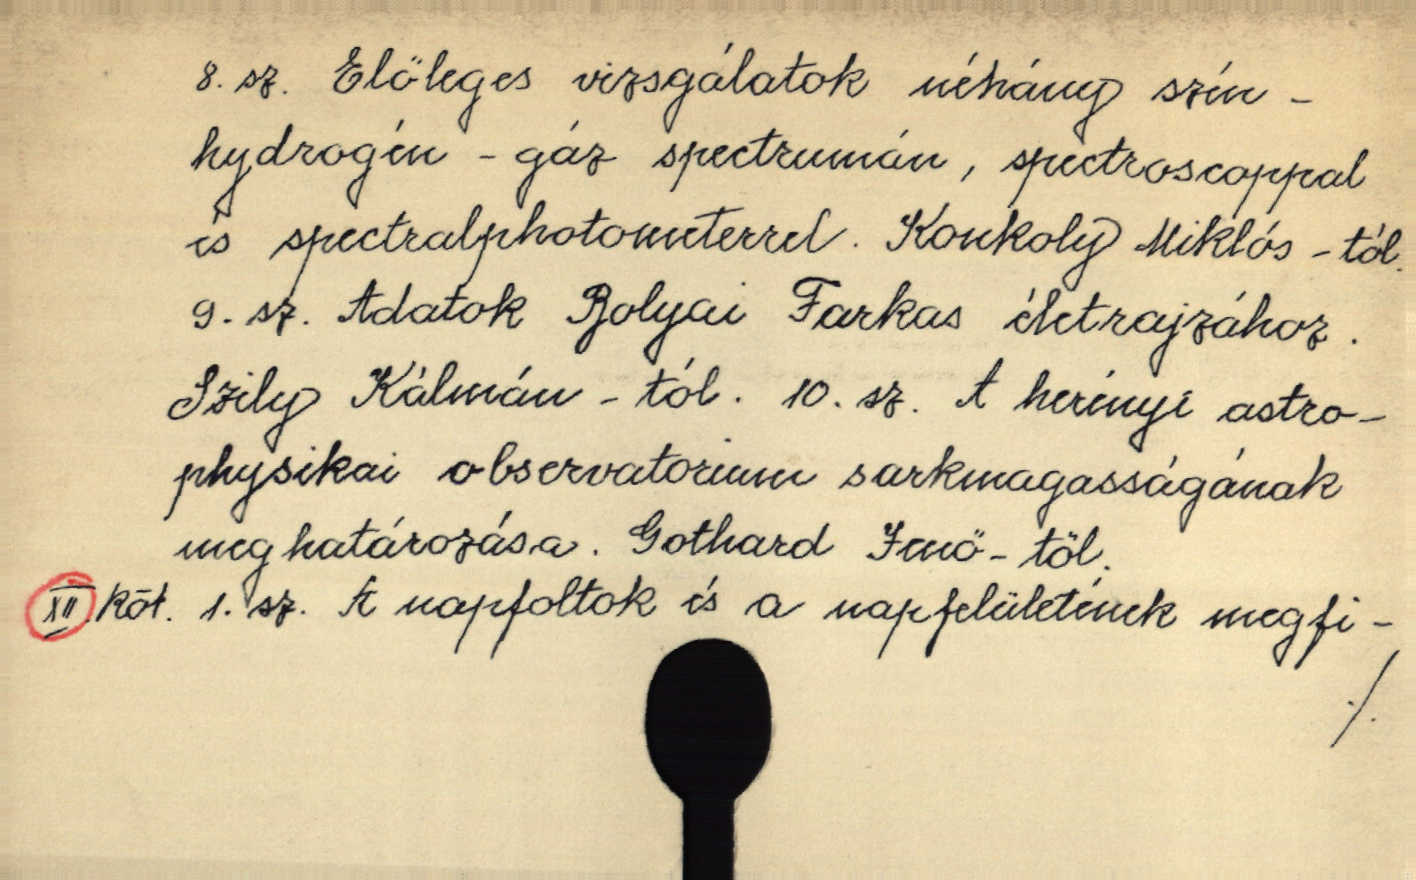 8. sz. Előleges vizsgálatok néhány szín -
hydrogén - gáz spectrumán, spectroscoppal
és spectralphotometerrel. Konkoly Miklós - tól.
9. sz. Adatok Bolyai Farkas életrajzához.
Szily Kálmán - tól. 10. sz. A herényi astro-
physikai observatorium sarkmagasságának
meghatározása. Gothard Jenő - től.
XII. köt. 1. sz. A napfoltok és a napfelületének megfi -
./.